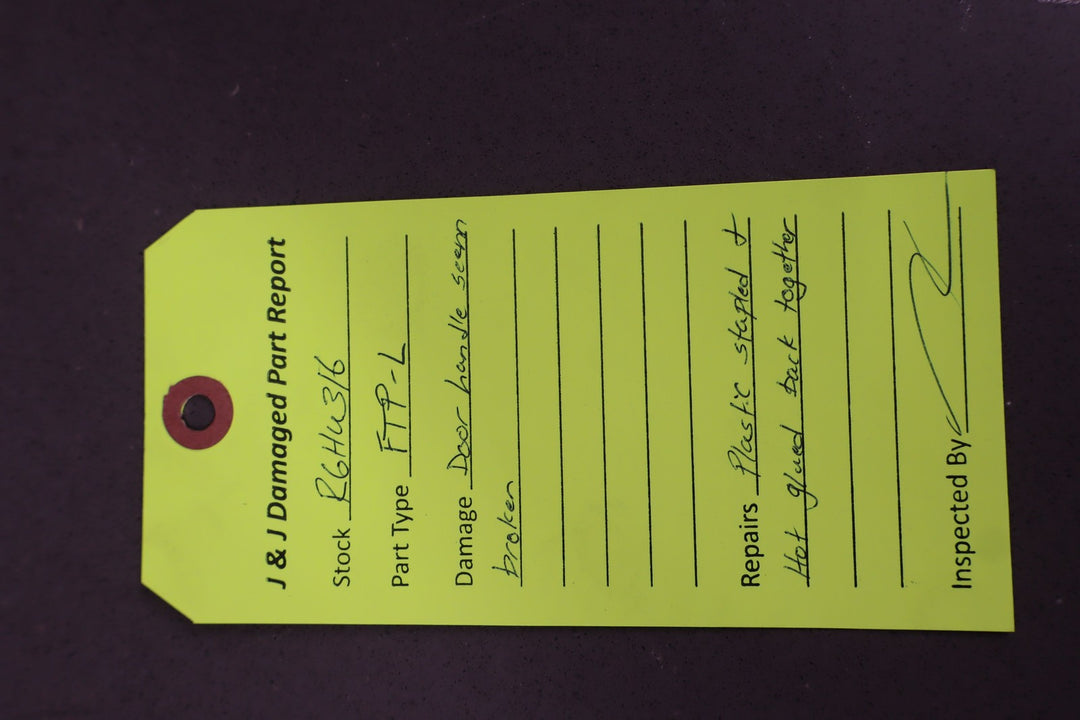 J & J Damaged Part Report
Stock R6HU316
Part Type FTP-L
Damage Door handle seem
broken
Repairs Plastic stapled &
Hot glued back together
Inspected By